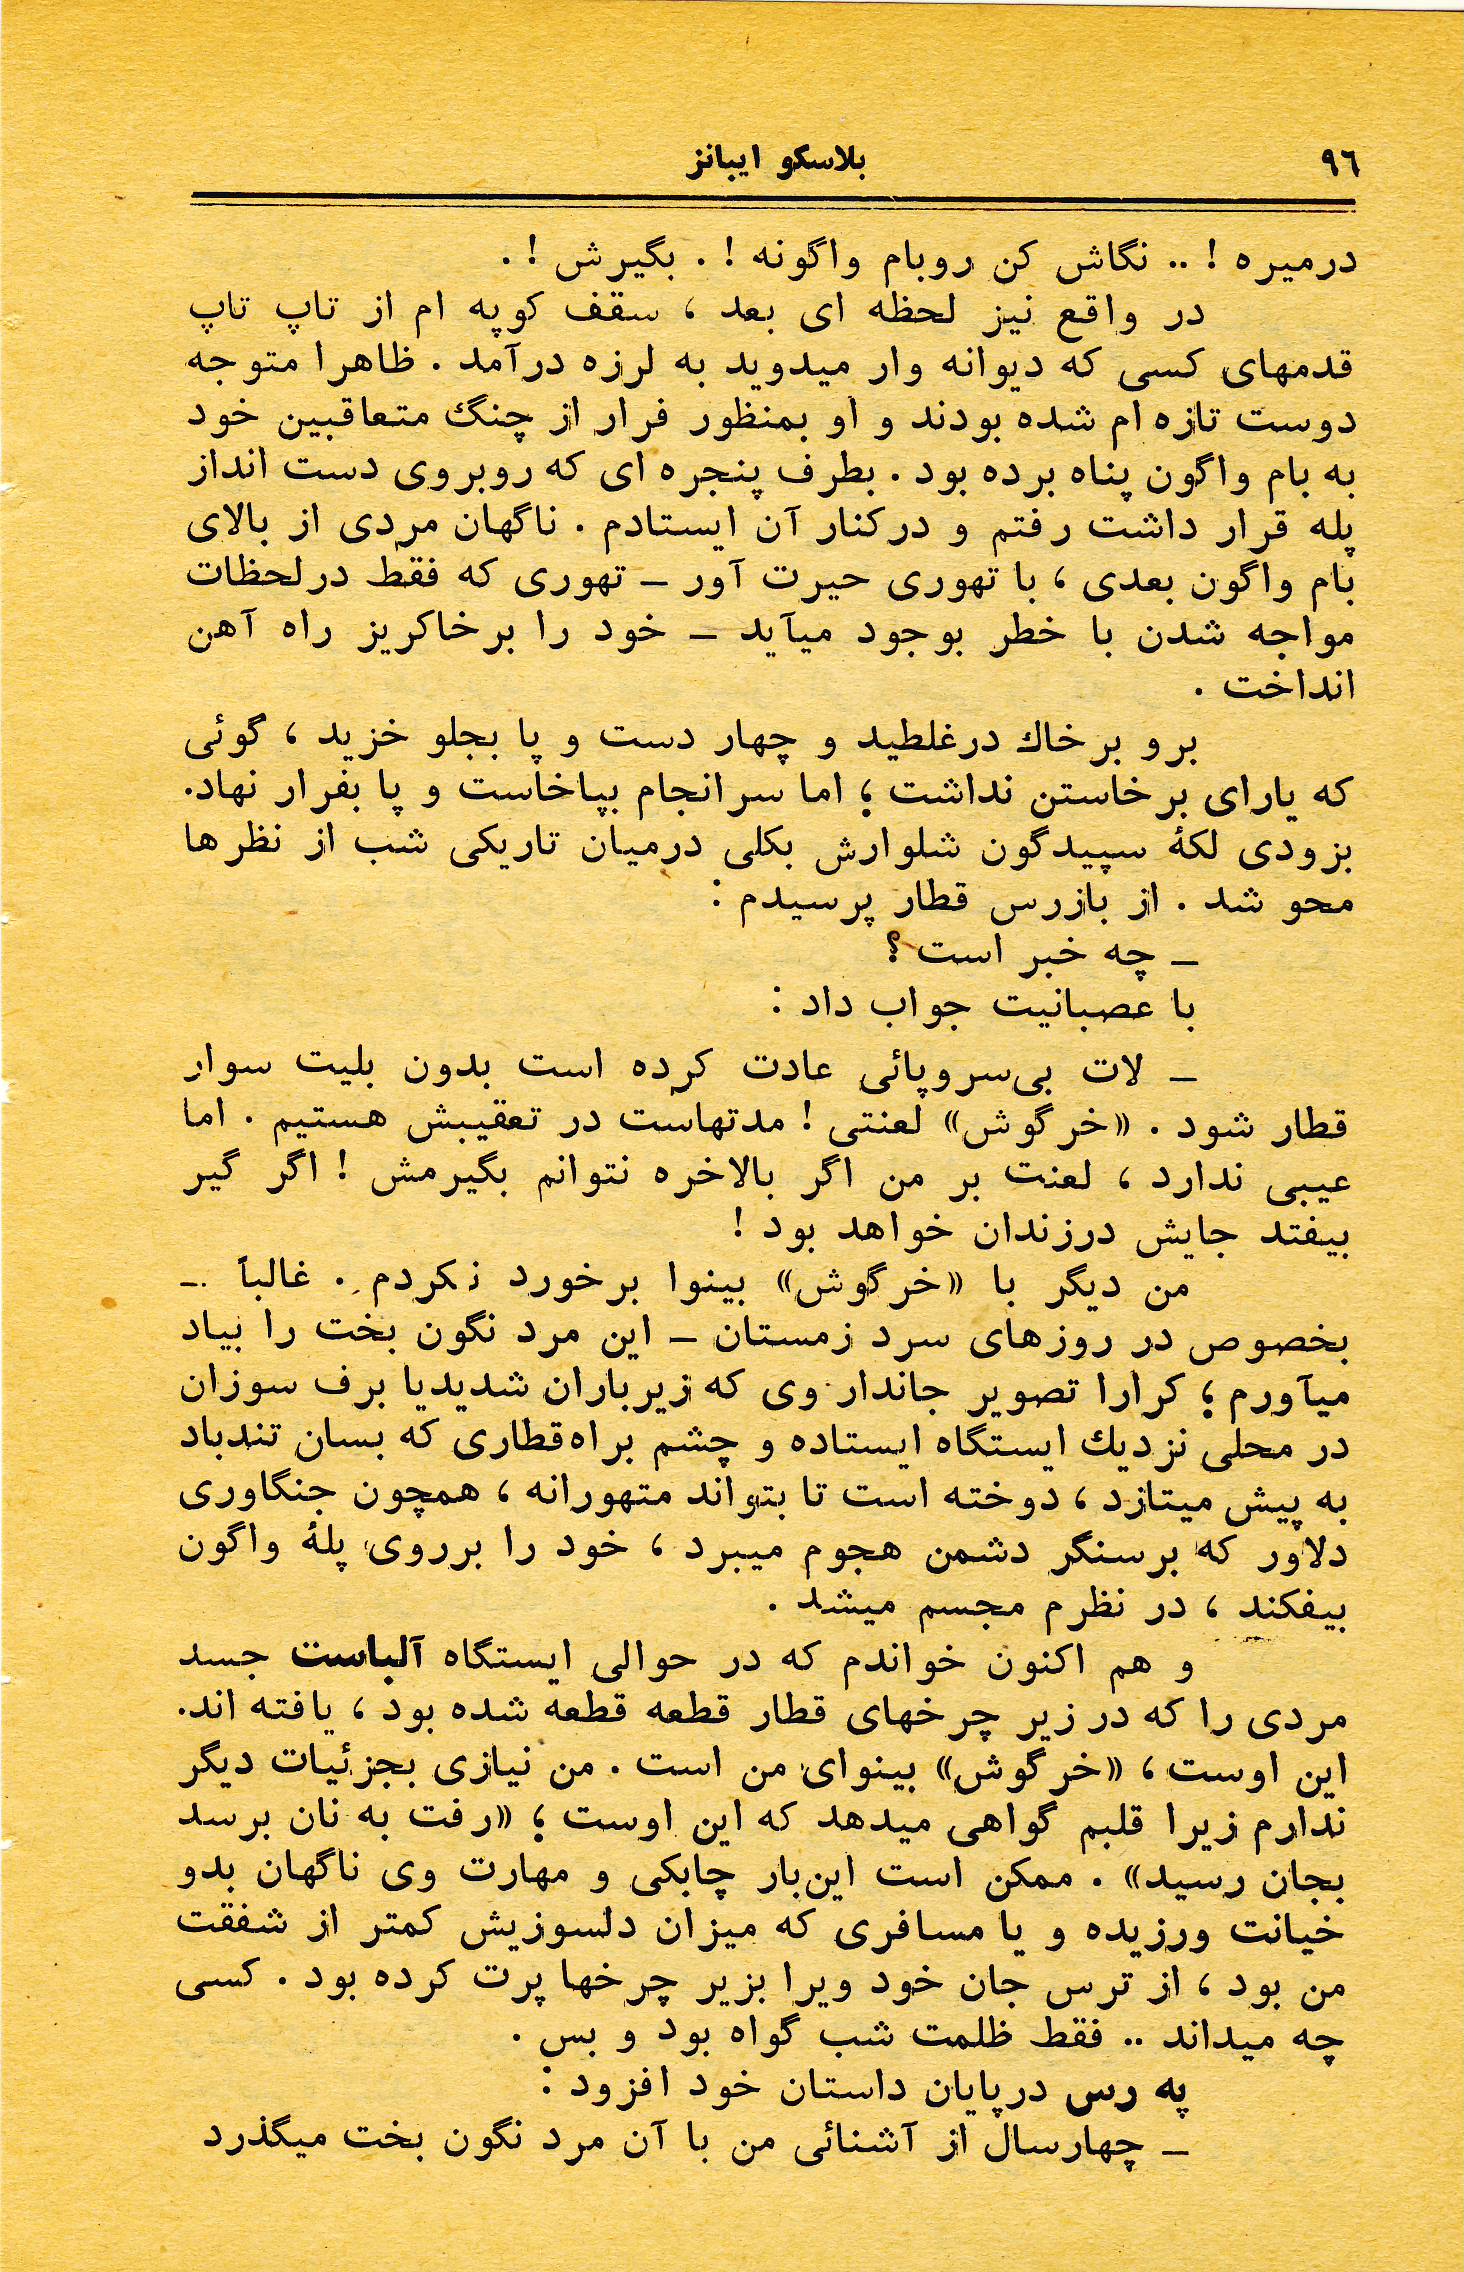 ٩٦
بلاسکو ایبانز
درمیره ! .. نگاش کن روبام واگونه ! . بگیرش ! .
در واقع نیز لحظه ای بعد ، سقف کوپه ام از تاپ تاپ
قدمهای کسی که دیوانه وار میدوید به لرزه درآمد . ظاهرا متوجه
دوست تازه ام شده بودند و او بمنظور فرار از چنگ متعاقبین خود
به بام واگون پناه برده بود . بطرف پنجره ای که روبروی دست انداز
پله قرار داشت رفتم و درکنار آن ایستادم . ناگهان مردی از بالای
بام واگون بعدی ، با تهوری حیرت آور ــ تهوری که فقط درلحظات
مواجه شدن با خطر بوجود میآید ــ خود را برخاکریز راه آهن
انداخت .
برو برخاك درغلطید و چهار دست و پا بجلو خزید ، گوئی
که یارای برخاستن نداشت ؛ اما سرانجام بپاخاست و پا بفرار نهاد.
بزودی لکهٔ سپیدگون شلوارش بکلی درمیان تاریکی شب از نظرها
محو شد . از بازرس قطار پرسیدم :
ــ چه خبر است ؟
با عصبانیت جواب داد :
ــ لات بی‌سروپائی عادت کرده است بدون بلیت سوار
قطار شود . «خرگوش» لعنتی ! مدتهاست در تعقیبش هستیم . اما
عیبی ندارد ، لعنت بر من اگر بالاخره نتوانم بگیرمش ! اگر گیر
بیفتد جایش درزندان خواهد بود !
من دیگر با «خرگوش» بینوا برخورد نکردم . غالباً ــ
بخصوص در روزهای سرد زمستان ــ این مرد نگون بخت را بیاد
میآورم ؛ کرارا تصویر جاندار وی که زیرباران شدیدیا برف سوزان
در محلی نزدیك ایستگاه ایستاده و چشم براه‌قطاری که بسان تندباد
به پیش میتازد ، دوخته است تا بتواند متهورانه ، همچون جنگاوری
دلاور که برسنگر دشمن هجوم میبرد ، خود را برروی پلهٔ واگون
بیفکند ، در نظرم مجسم میشد .
و هم اکنون خواندم که در حوالی ایستگاه آلباست جسد
مردی را که در زیر چرخهای قطار قطعه قطعه شده بود ، یافته اند.
این اوست ، «خرگوش» بینوای من است . من نیازی بجزئیات دیگر
ندارم زیرا قلبم گواهی میدهد که این اوست ؛ «رفت به نان برسد
بجان رسید» . ممکن است این‌بار چابکی و مهارت وی ناگهان بدو
خیانت ورزیده و یا مسافری که میزان دلسوزیش کمتر از شفقت
من بود ، از ترس جان خود ویرا بزیر چرخها پرت کرده بود . کسی
چه میداند .. فقط ظلمت شب گواه بود و بس .
په رس درپایان داستان خود افزود :
ــ چهارسال از آشنائی من با آن مرد نگون بخت میگذرد